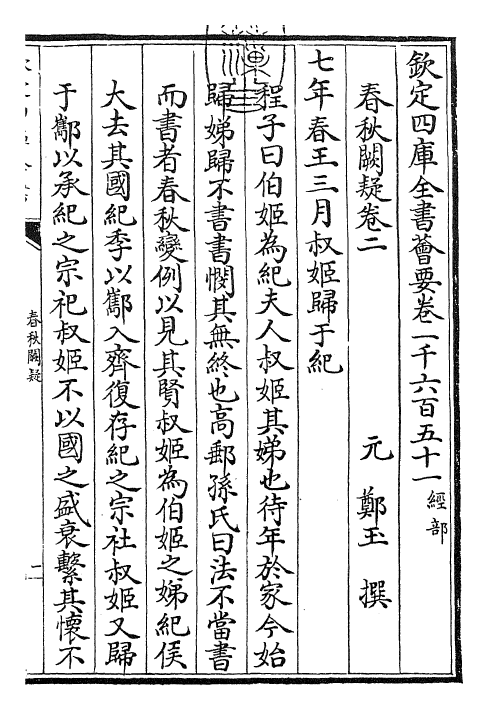 欽定四庫全書薈要卷一千六百五十一經部
春秋闕疑卷二
元 鄭玉 撰
七年春王三月叔姬歸于紀
程子曰伯姬為紀夫人叔姬其娣也待年於家今始
歸娣歸不書書憫其無終也高郵孫氏曰法不當書
而書者春秋變例以見其賢叔姬為伯姬之娣紀侯
大去其國紀季以酅入齊復存紀之宗社叔姬又歸
于酅以承紀之宗祀叔姬不以國之盛衰繫其懷不
春秋闕疑